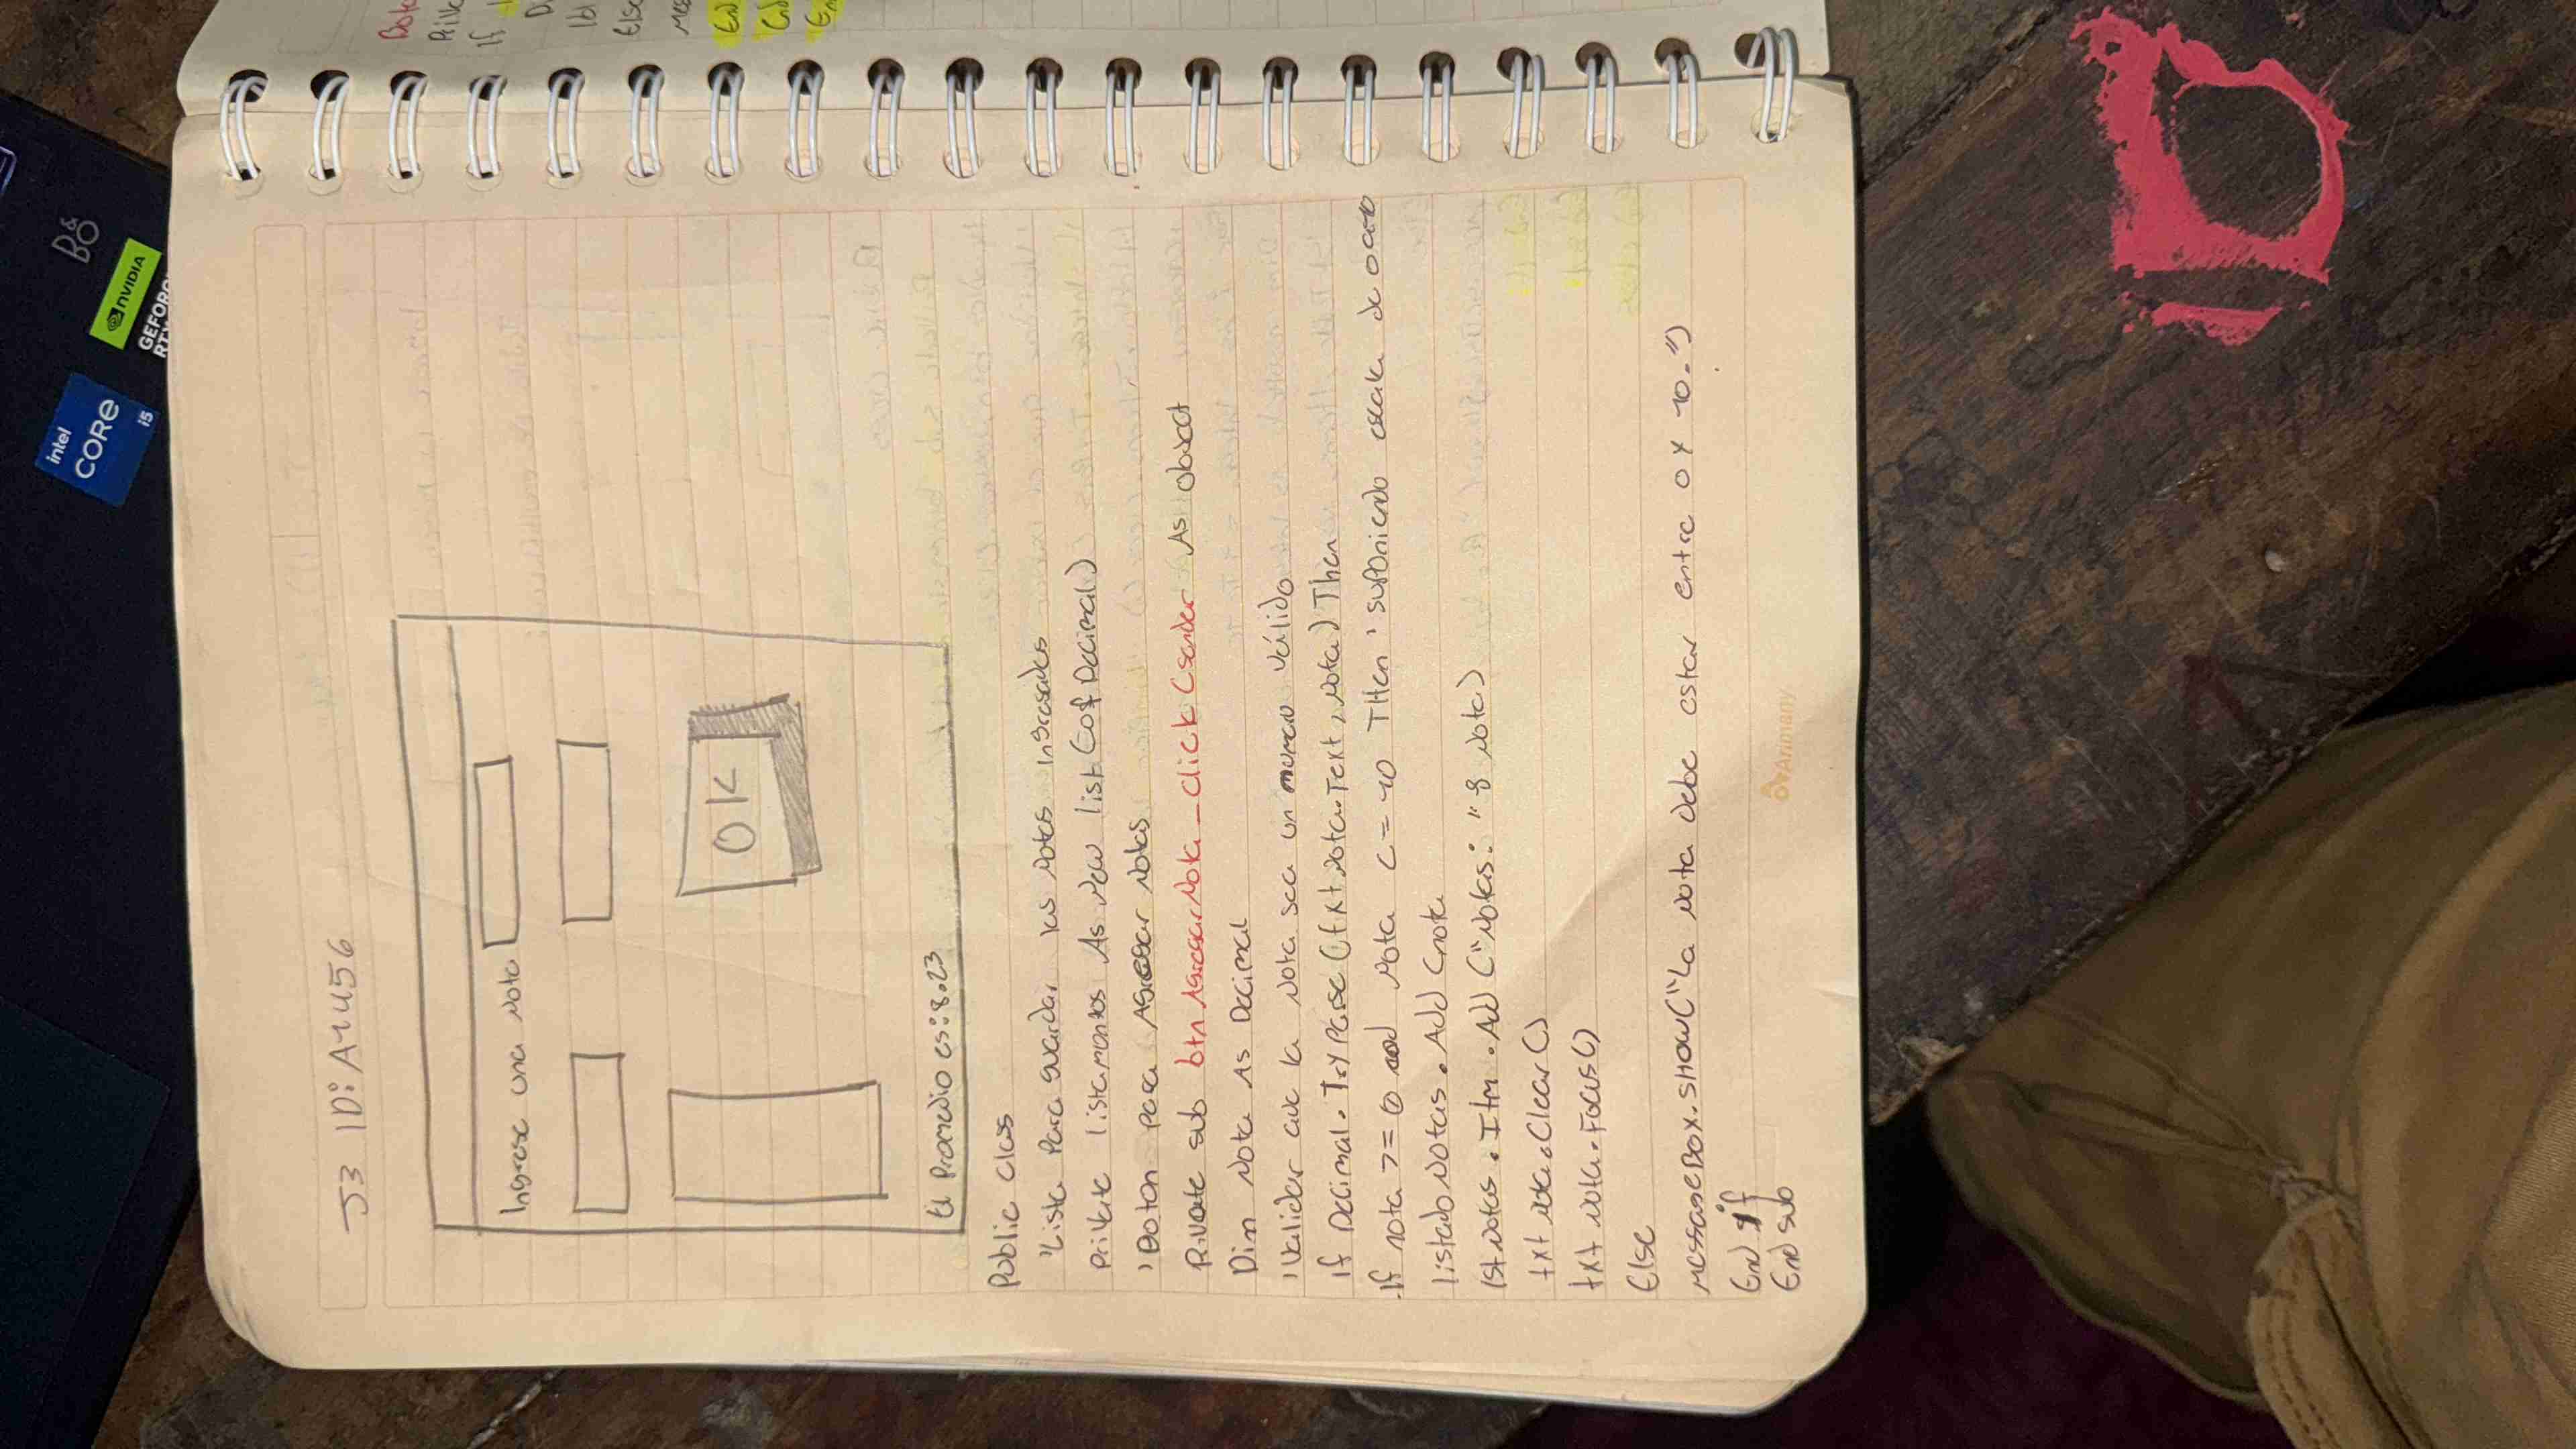 J3 ID: A1456
Ingrese una Nota
OK
El Promedio es: 8.23
Public Class
'Lista Para guardar las Notas Ingresadas
Private listamontos As New list(of Decimal)
'Boton para Agregar Notas
Private sub btnAgregarNota_Click(sender As object
Dim Nota As Decimal
'Validar que la Nota sea un numero Válido
If Decimal.TryParse(txtNota.Text, Nota) Then
If nota >= 0 and Nota <= 10 Then 'suponiendo escala de 0 a 10
listadoNotas.Add(nota
lstNotas.Item.Add("Notas: "& Nota)
txtNota.Clear()
txtNota.Focus()
Else
MessageBox.Show("La Nota debe estar entre 0 y 10.")
End if
End sub
Arimany
intel
CORE
i5
NVIDIA
GEFORC
RTX
B&O
Boto
Priva
If
D
lbl
Else
Mes
End
End
En